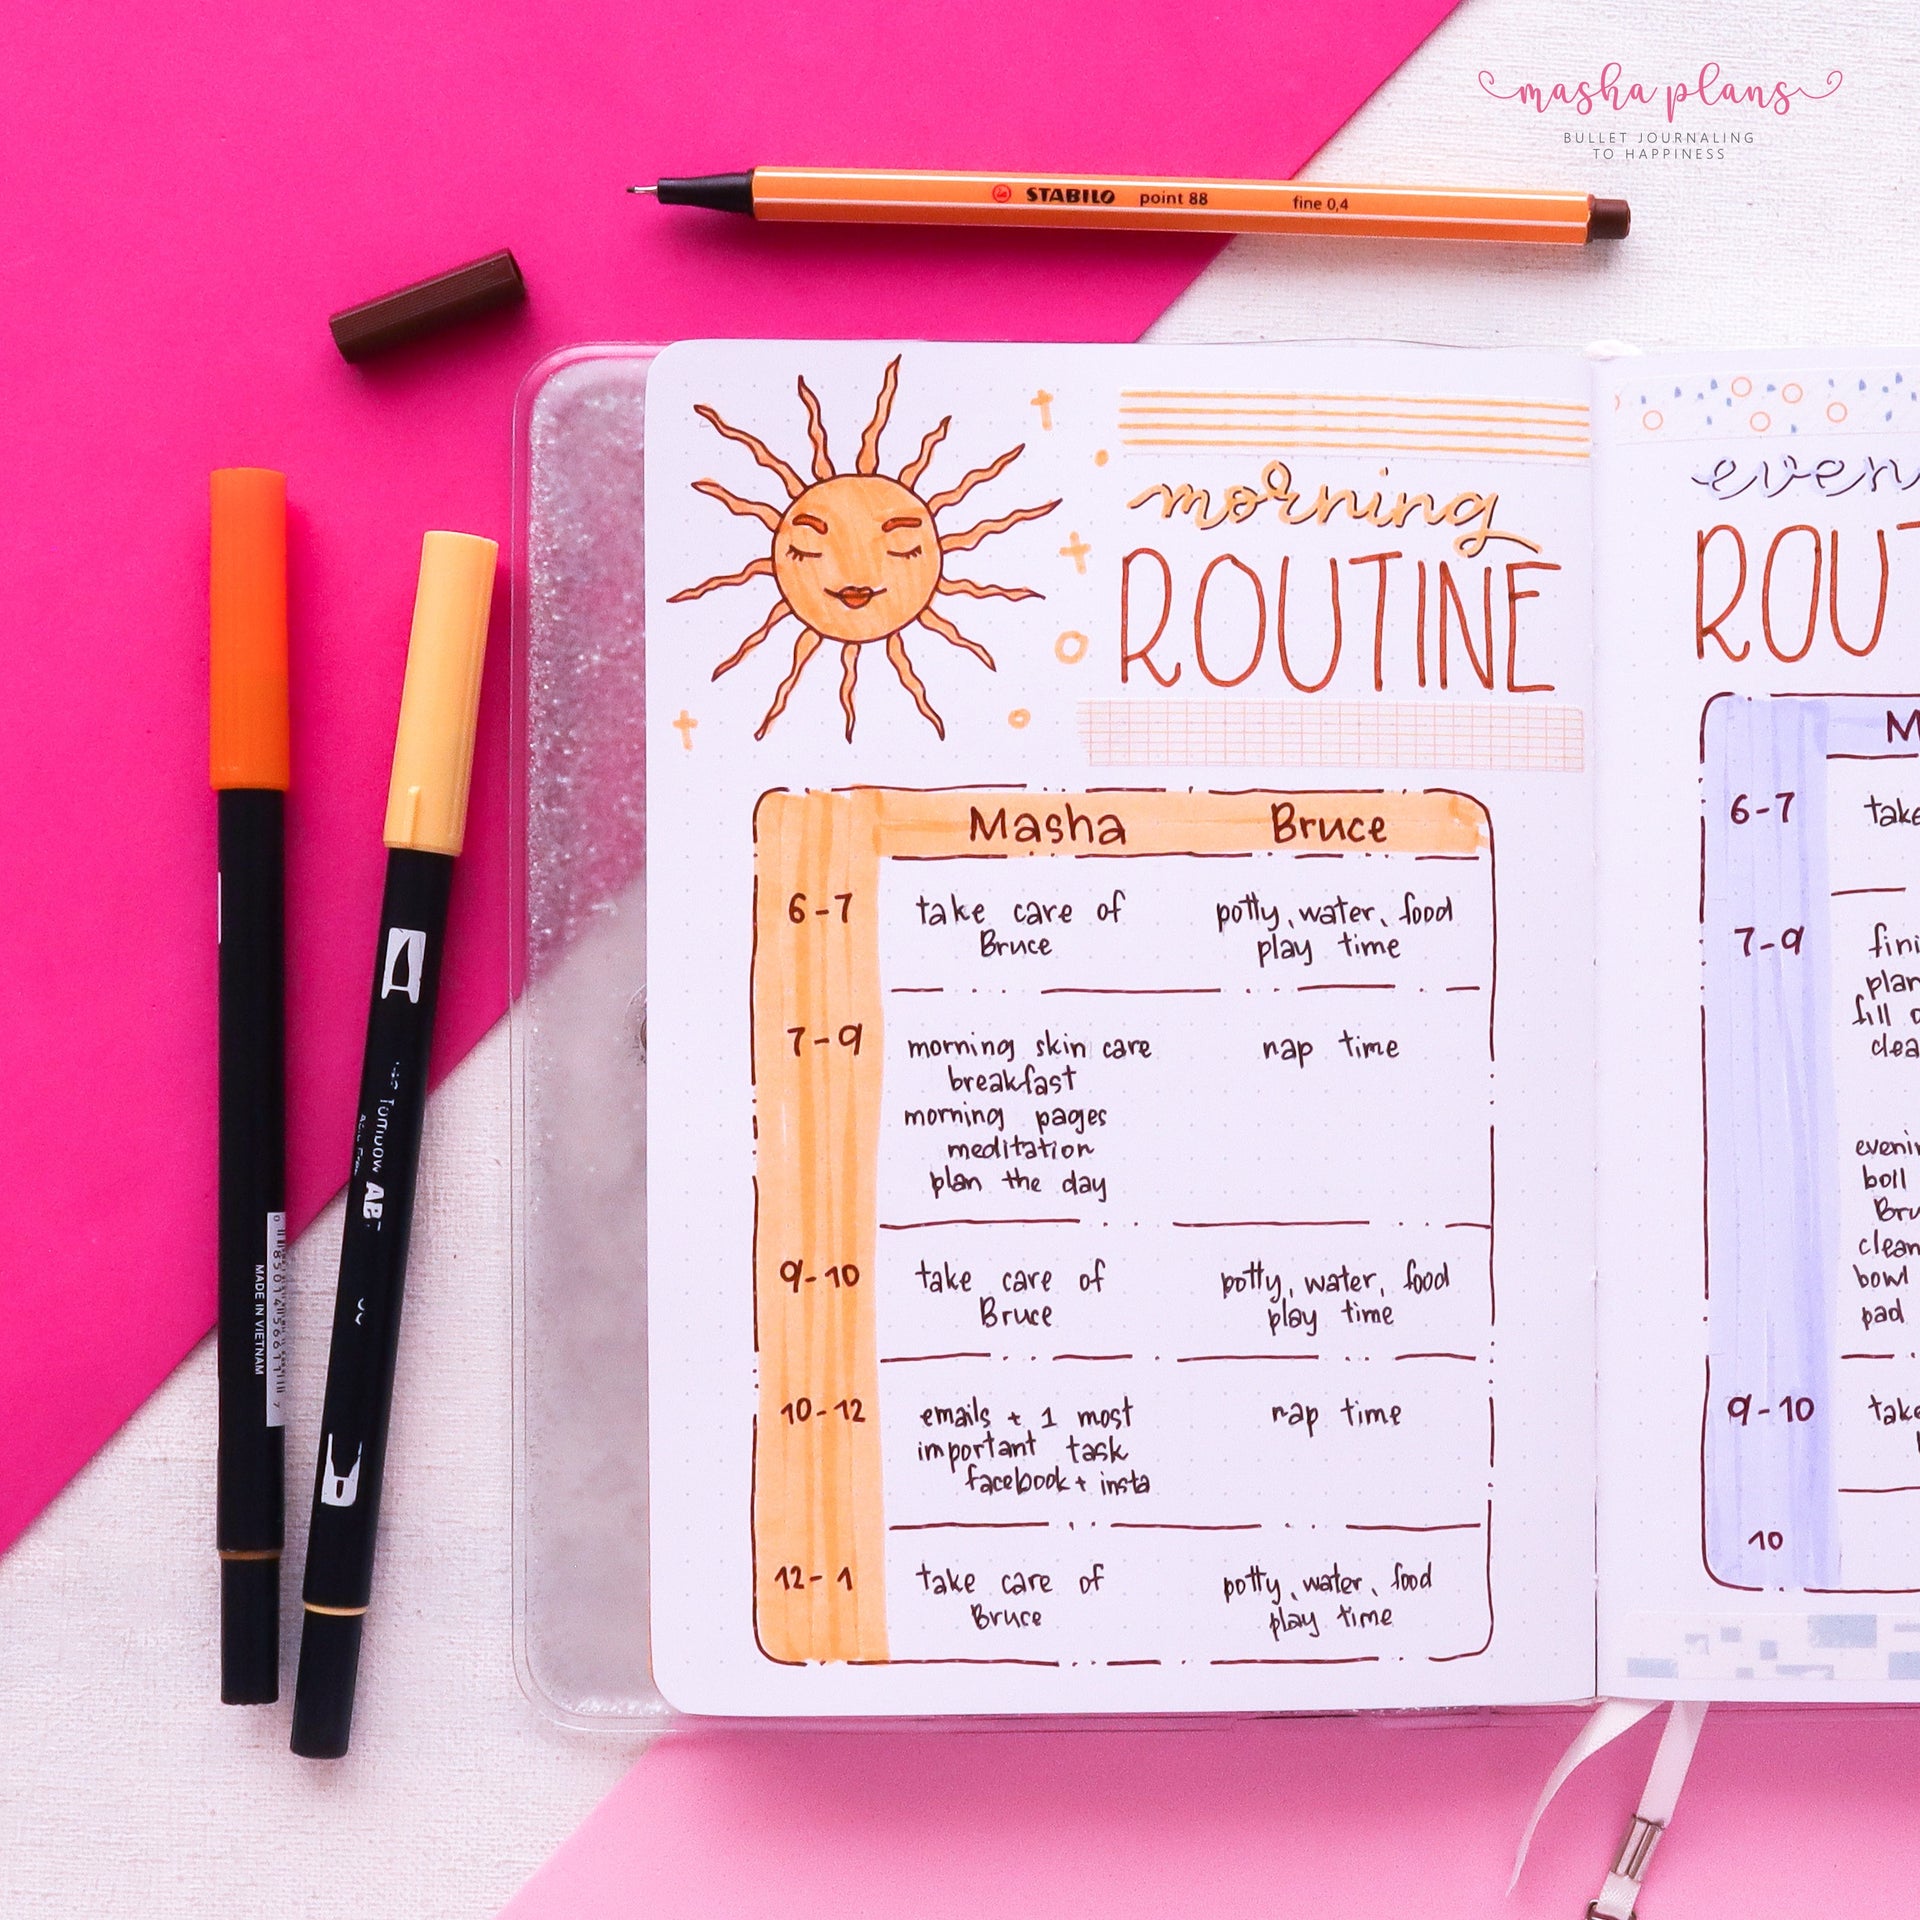 masha plans
BULLET JOURNALING
TO HAPPINESS
STABILO point 88 fine 0,4
morning
ROUTINE
Masha Bruce
6-7 take care of potty, water, food
Bruce play time
7-9 morning skin care nap time
breakfast
morning pages
meditation
plan the day
9-10 take care of potty, water, food
Bruce play time
10-12 emails + 1 most nap time
important task
facebook + insta
12-1 take care of potty, water, food
Bruce play time
even
ROUT
M
6-7 take
7-9 fini
plan
fill o
clea
evenin
boil
Bru
clean
bowl
pad
9-10 take
10
Tombow AB
MADE IN VIETNAM